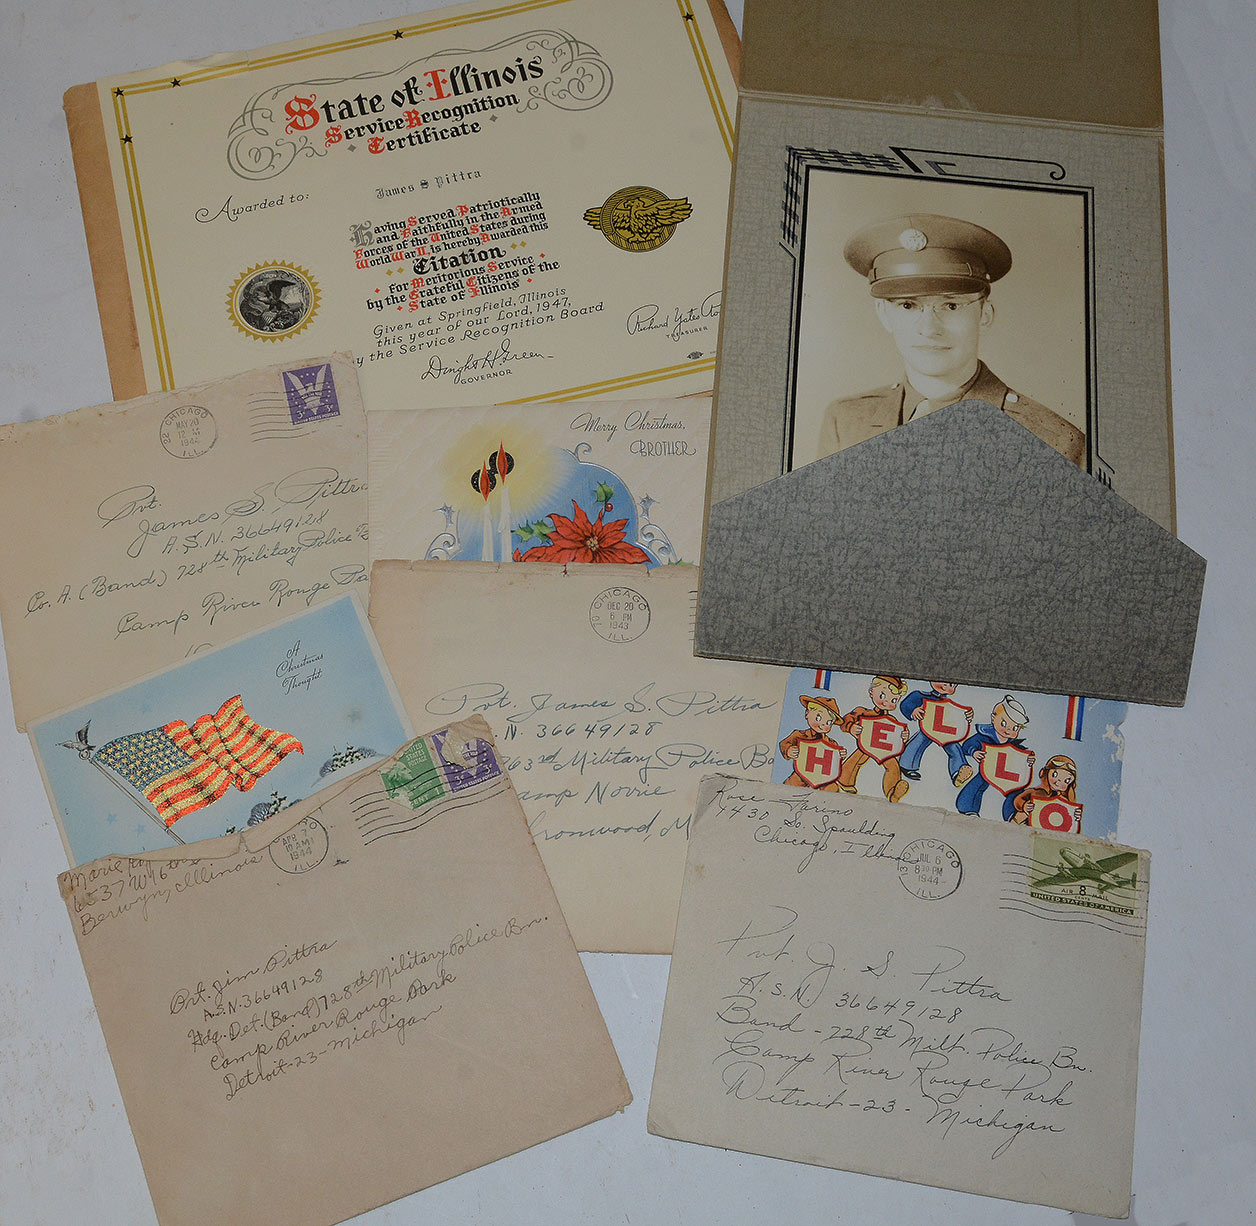 State of Illinois
Service Recognition
Certificate
Awarded to:
James S Pittra
Having Served Patriotically
and Faithfully in the Armed
Forces of the United States during
World War II, is hereby Awarded this
Citation
for Meritorious Service
by the Grateful Citizens of the
State of Illinois
Given at Springfield, Illinois
this year of our Lord, 1947,
by the Service Recognition Board
Dwight H. Green
GOVERNOR
Richard Yates
TREASURER
CHICAGO
22
MAY 20
12 M
1944
ILL.
3¢
UNITED STATES POSTAGE
Pvt.
James S Pittra
A.S.N. 36649128
Co. A. (Band) 728th Military Police
Camp River Rouge
Merry Christmas,
BROTHER
CHICAGO
70
DEC 20
6 PM
1943
ILL.
Pvt. James S. Pittra
.N. 36649128
63rd Military Police
Camp Norrie
Ironwood, M
A
Christmas
Thought
HELLO
CHICAGO
APR 7
10 AM
1944
ILL.
3¢
Marie
6537 W 16th
Berwyn, Illinois
Pvt. Jim Pittra
A.S.N. 36649128
Hdq. Det. (Band) 728th Military Police Bn.
Camp River Rouge Park
Detroit-23-Michigan
Rose Farino
4430 So. Spaulding
Chicago, Illinois
CHICAGO
13
JUL 6
8 30 PM
1944
ILL.
AIR 8 MAIL
CENTS
UNITED STATES OF AMERICA
Pvt. J. S. Pittra
A.S.N. 36649128
Band - 728th Milt. Police Bn.
Camp River Rouge Park
Detroit - 23 - Michigan